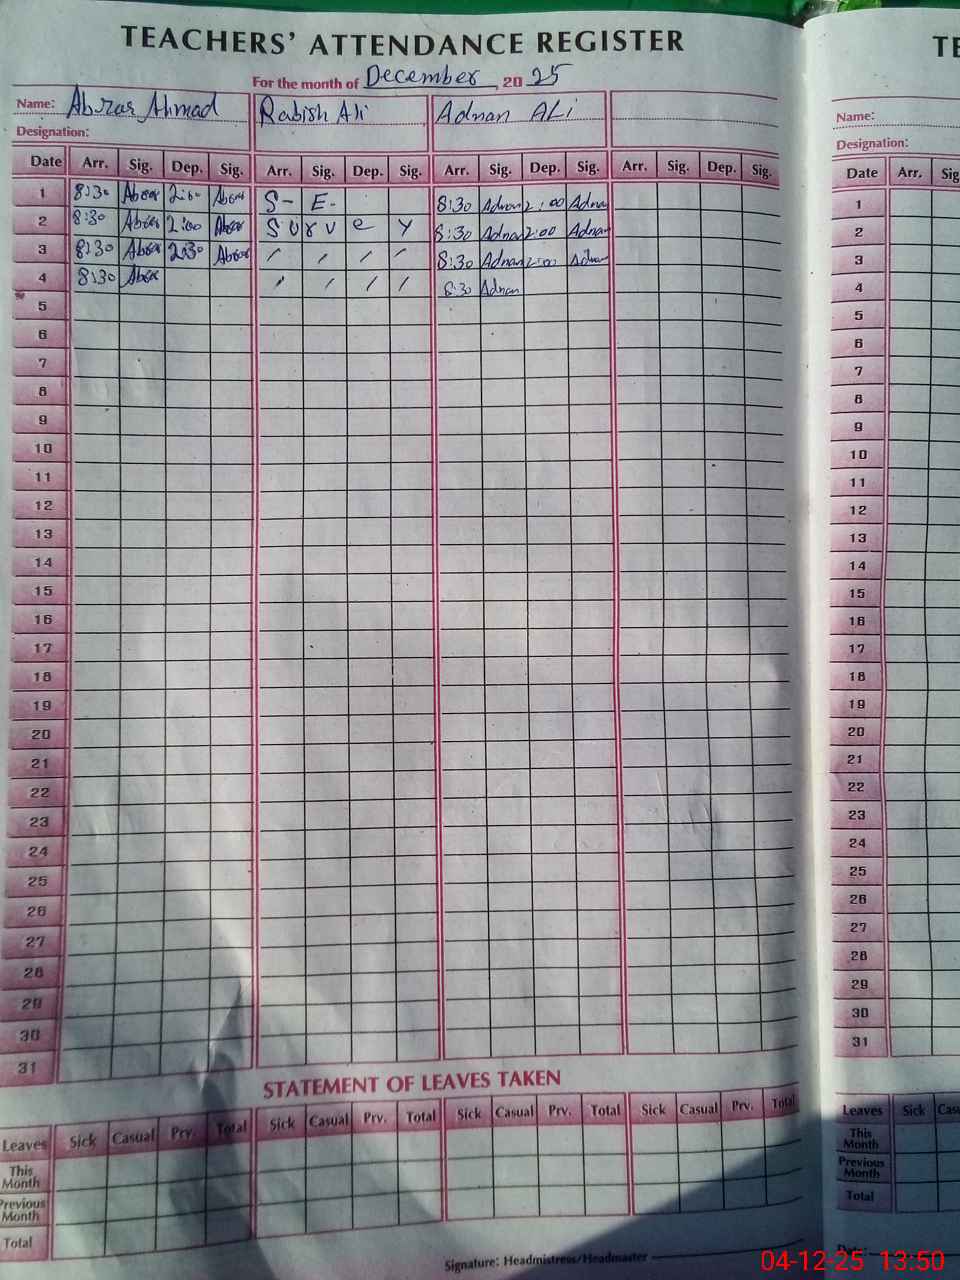 TEACHERS' ATTENDANCE REGISTER
For the month of December, 2025
Name: Abrar Ahmad Rabish Ali Adnan ALi
Designation:
Date Arr. Sig. Dep. Sig. Arr. Sig. Dep. Sig. Arr. Sig. Dep. Sig. Arr. Sig. Dep. Sig.
1 8:30 Abrar 2:00 Abrar S- E- 8:30 Adnan 2:00 Adnan
2 8:30 Abrar 2:00 Abrar S u r v e y 8:30 Adnan 2:00 Adnan
3 8:30 Abrar 2:30 Abrar / / / / 8:30 Adnan 2:00 Adnan
4 8:30 Abrar / / / / 8:30 Adnan
5
6
7
8
9
10
11
12
13
14
15
16
17
18
19
20
21
22
23
24
25
26
27
28
29
30
31
STATEMENT OF LEAVES TAKEN
Leaves Sick Casual Prv. Total Sick Casual Prv. Total Sick Casual Prv. Total Sick Casual Prv. Total
This Month
Previous Month
Total
Signature: Headmistress/Headmaster
TE
Name:
Designation:
Date Arr. Sig
1
2
3
4
5
6
7
8
9
10
11
12
13
14
15
16
17
18
19
20
21
22
23
24
25
26
27
28
29
30
31
Leaves Sick Cas
This Month
Previous Month
Total
Date:
04-12-25 13:50